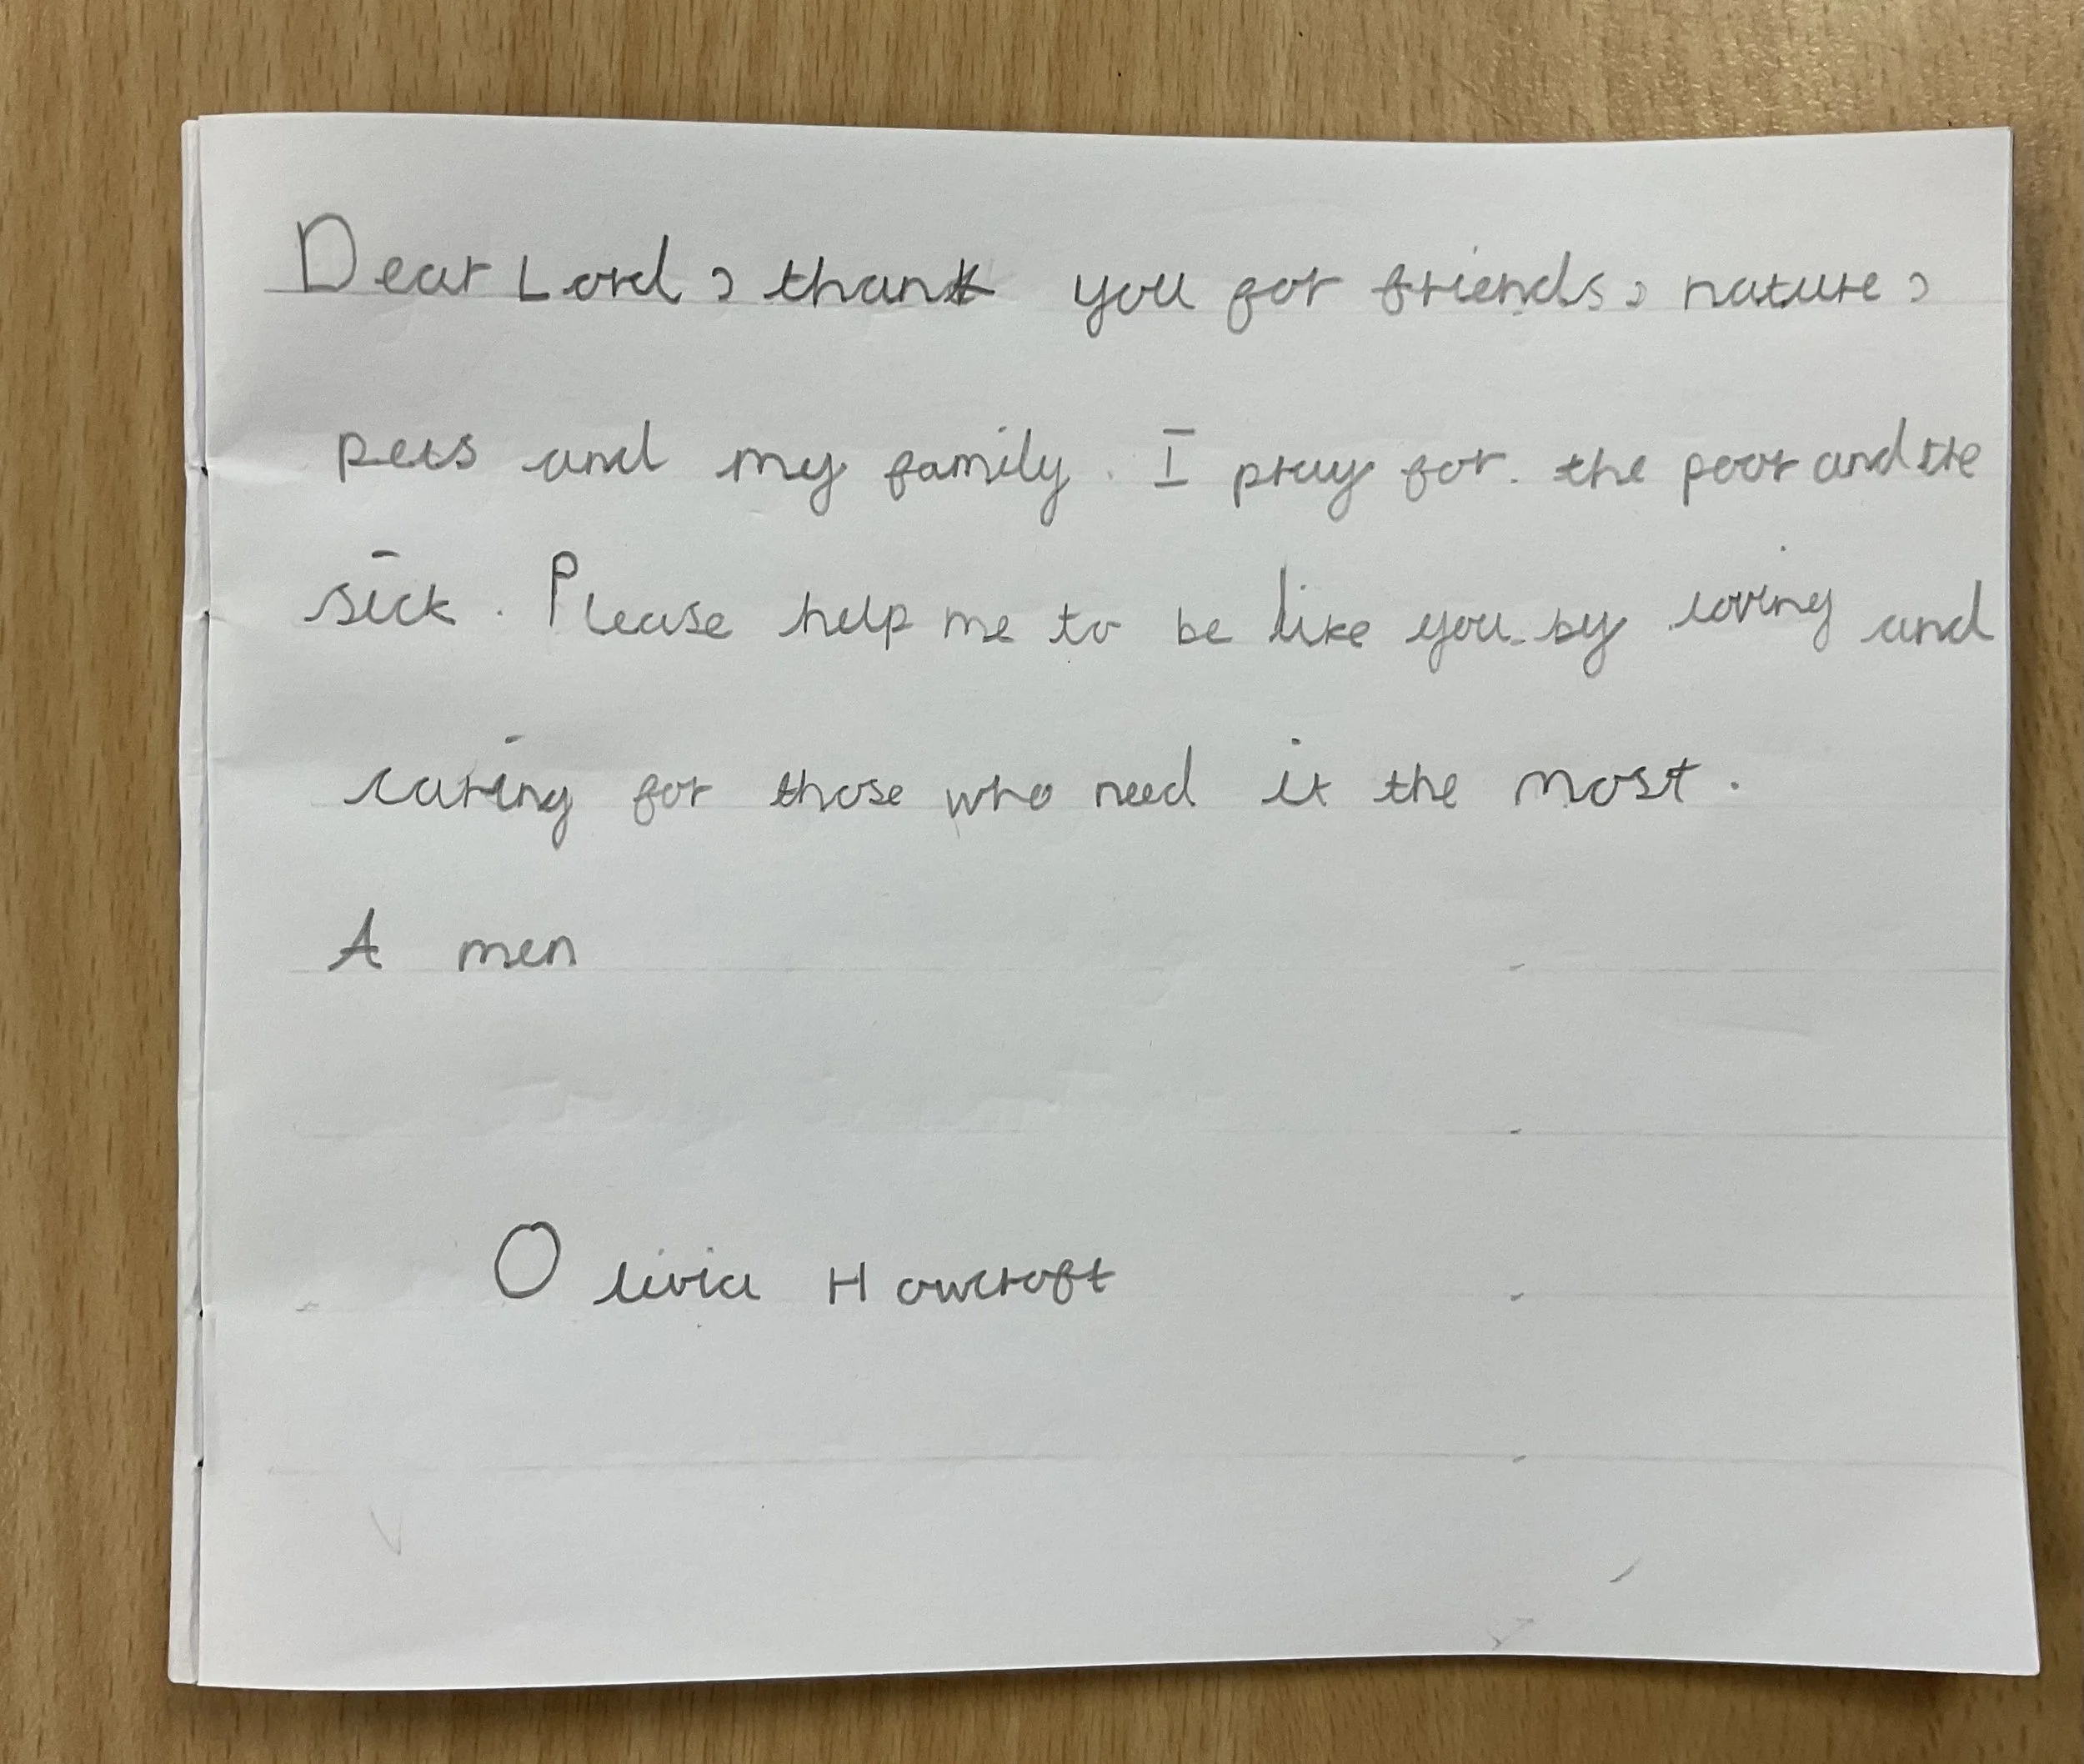 Dear Lord, thank you for friends, nature,
pets and my family. I pray for the poor and the
sick. Please help me to be like you by loving and
caring for those who need it the most.
A men
Olivia Howcroft